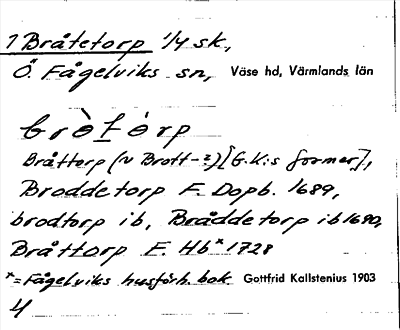 1 Bråtetorp 1/4 sk,
Ö. Fågelviks sn, Väse hd, Värmlands län
brὸtȯrp
Bråttorp (~ Brott-?) [G.K:s former],
Broddetorp F. Dopb. 1689,
brodtorp ib, Bråddetorp ib 1690,
Bråttorp F. Hb* 1728
*=Fågelviks husförh. bok Gottfrid Kallstenius 1903
4